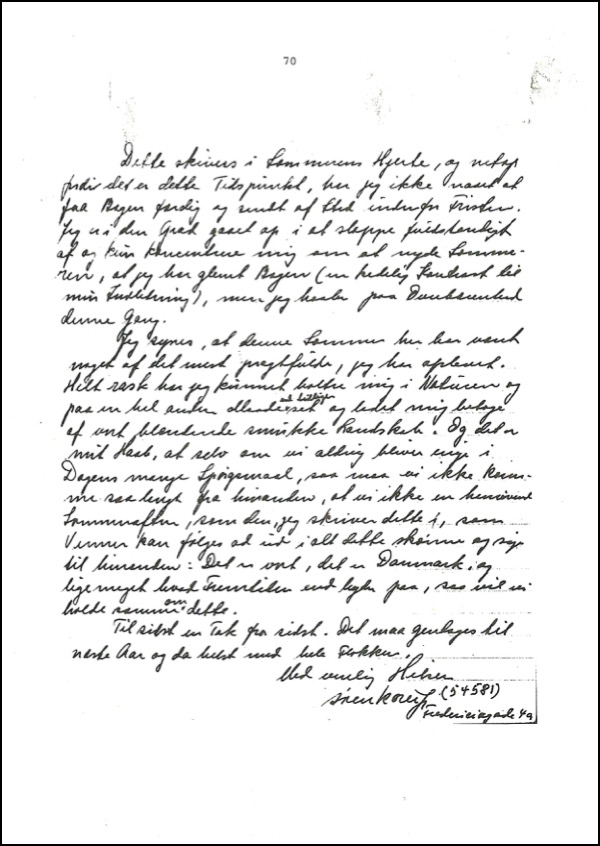 70
Dette skrives i Sommerens Hjerte, og netop
fordi det er dette Tidspunkt, har jeg ikke naaet at
faa Bogen færdig og sendt af Sted indenfor Fristen.
Jeg er i den Grad gaaet op i at slappe fuldstændigt
af og kun koncentrere mig om at nyde Somme-
ren, at jeg har glemt Bogen (en kedelig Kontrast til
min Indledning), men jeg haaber paa
denne Gang.
Jeg synes, at denne Sommer her har været
noget af det mest pragtfulde, jeg har oplevet.
Helt rask har jeg kunnet boltre mig i Naturen og
paa en hel anden set og ladet mig betage
af vort blændende smukke Landskab. Og det er
mit Haab, at selv om vi aldrig bliver enige i
Dagens mange Spørgsmaal, saa maa vi ikke kom-
me saa langt fra hinanden, at vi ikke en henrivende
Sommeraften, som den, jeg skriver dette i, som
Venner kan følges ad ud i alt dette skønne og sige
til hinanden: Det er vort, det er Danmark, og
lige meget hvad Fremtiden end byder paa, saa vil vi
holde sammen om dette.
Til sidst en Tak for sidst. Det maa gentages til
næste Aar og da helst med hele Flokken.
Med venlig Hilsen
(54581)
Fredericiagade 4a